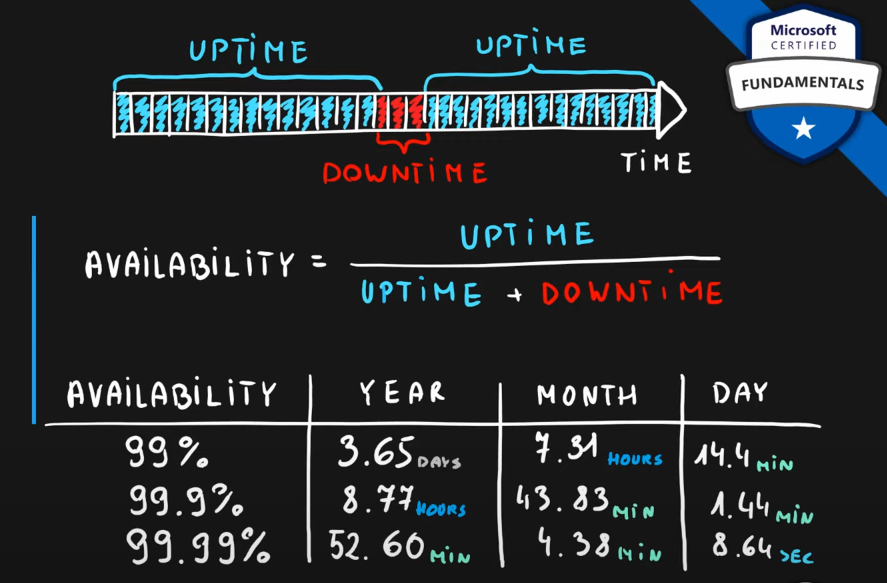 UPTiME
UPTiME
Microsoft
CERTIFIED
FUNDAMENTALS
DOWNTiME
TiME
AVAiLABiLiTY = UPTiME
UPTiME + DOWNTiME
AVAiLABiLiTY YEAR MONTH DAY
99% 3.65 DAYS 7.31 HOURS 14.4 MiN
99.9% 8.77 HOURS 43.83 MiN 1.44 MiN
99.99% 52.60 MiN 4.38 MiN 8.64 SEC